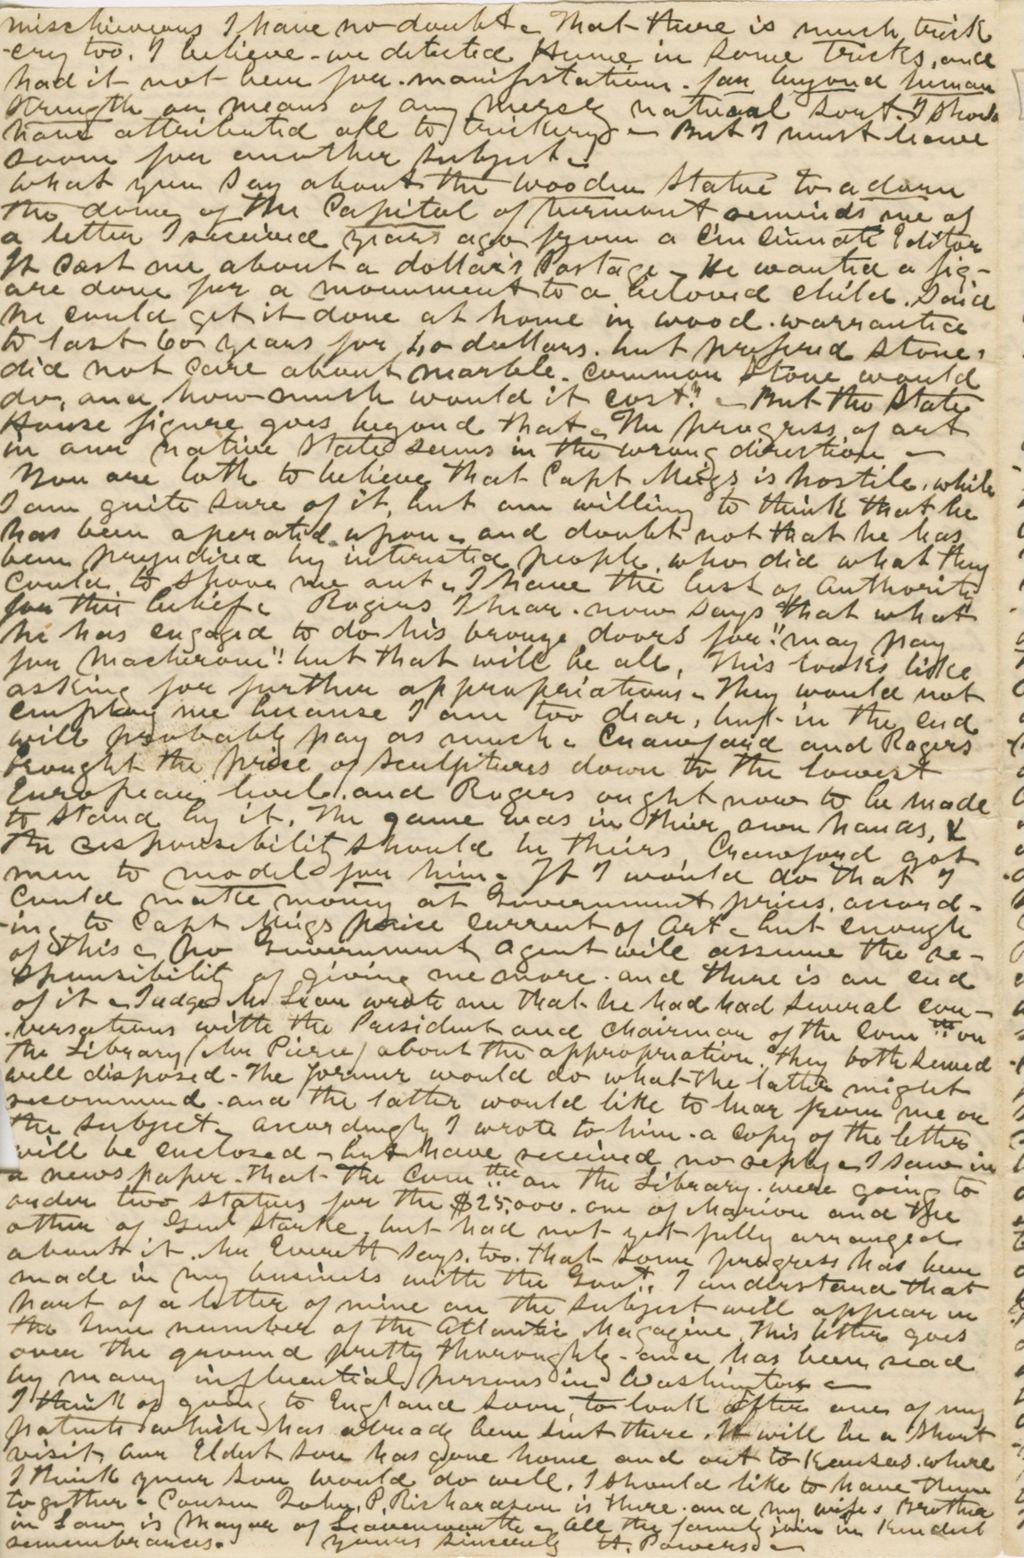 mischievious I have no doubt. That there is much trick
-ery too. I believe - we detected Hume in some tricks, and
had it not been for manifestations far beyond human
strength or means of any merely natural sort. I should
have attributed all to trickery - But I must leave
room for another subject.
What you say about the wooden statue to adorn
the dome of the Capitol of Vermont reminds me of
a letter I received years ago from a Cincinnati Editor
It cost me about a dollar's Postage - He wanted a fig-
ure done for a monument to a beloved child. Said
he could get it done at home in wood. warranted
to last 60 years for 40 dollars. but prefered stone,
did not care about marble. Common stone would
do, and how much would it cost? - But the State
House figure goes beyond that. The progress of art
in our native State seems in the wrong direction -
You are loth to believe that Capt Meigs is hostile, while
I am quite sure of it, but am willing to think that he
has been operated upon - and doubt not that he has
been prejudiced by interested people, who did what they
could to shove me out. I have the best of Authority
for this belief. Rogers I hear. now says that what
he has engaged to do his bronze doors for "may pay
for Macheroni" but that will be all. This looks like
asking for further appropriations. They would not
employ me because I am too dear, but in the end
will probably pay as much. Crawford and Rogers
brought the price of sculptures down to the lowest
European level. and Rogers ought now to be made
to stand by it. The game was in their own hands, &
the responsibility should be theirs. Crawford got
men to model for him. If I would do that I
could make money at Government prices. accord-
-ing to Capt Meigs price current of Art. but enough
of this. No Government agent will assume the re-
sponsibility of giving me more. and there is an end
of it. Judge McLean wrote me that he had had several con-
-versations with the President and chairman of the Com ttee on
the Library (Mr Pierce) about the appropriation. They both seemed
well disposed - The former would do what the latter might
recommend. and the latter would like to hear from me on
the subject. accordingly I wrote to him. a copy of the letter
will be enclosed - but have received no reply. I saw in
a newspaper. that the Com ttee on the Library were going to
order two statues for the $25,000. one of Marion and the
other of Genl Starke, but had not yet fully arranged
about it. Mr Everett says. too. that some progress has been
made in my business with the Govt. I understand that
part of a letter of mine on the subject will appear in
the June number of the Atlantic Magazine. This letter goes
over the ground pretty thoroughly - and has been read
by many influential persons in Washington -
I think of going to England soon, to look after one of my
patents which has already been sent there. It will be a short
visit. Our Eldest son has gone home and out to Kansas. where
I think your son would do well. I should like to have them
together. Cousin John P. Richardson is there. and my wifes Brother
in Law is Mayor of Leavenworth. All the family join in kindest
remembrances. Yours sincerely H. Powers -